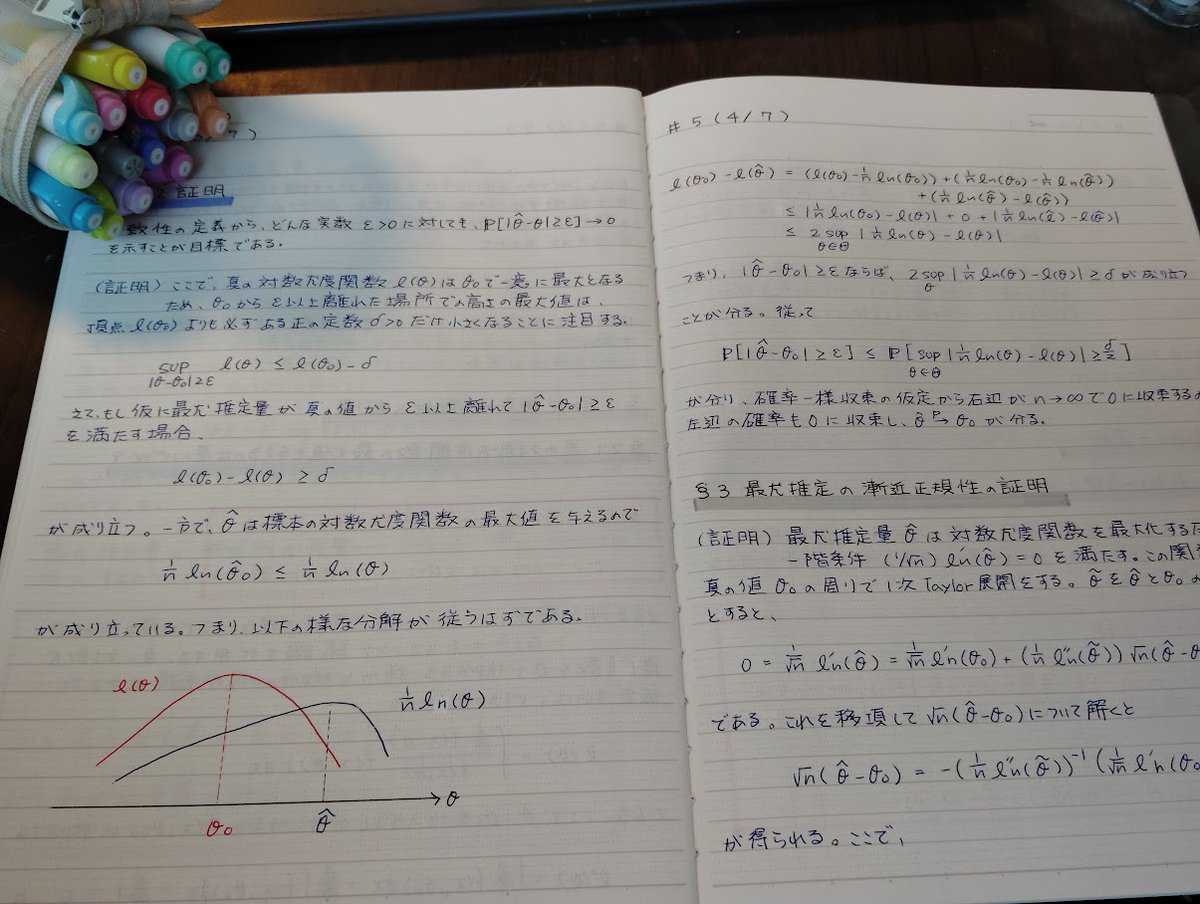 7)
証明
致性の定義から、どんな実数 ε>0 に対しても、P[|θ̂-θ|≥ε]→0
を示すことが目標である。
(証明) ここで、真の対数尤度関数 ℓ(θ) は θ₀ で一意に最大となる
ため、θ₀ から ε以上離れた場所での高さの最大値は、
頂点 ℓ(θ₀) よりも必ずある正の定数 δ>0 だけ小さくなることに注目する。
sup ℓ(θ) ≤ ℓ(θ₀) - δ
|θ-θ₀|≥ε
さて、もし仮に最尤推定量が真の値から ε以上離れて |θ̂-θ₀|≥ε
を満たす場合、
ℓ(θ₀) - ℓ(θ̂) ≥ δ
が成り立つ。一方で、θ̂ は標本の対数尤度関数の最大値を与えるので
1/n ℓn(θ̂₀) ≤ 1/n ℓn(θ)
が成り立っている。つまり、以下の様な分解が従うはずである。
ℓ(θ)
1/n ℓn(θ)
θ
θ₀ θ̂
#5 (4/7)
ℓ(θ₀) - ℓ(θ̂) = (ℓ(θ₀) - 1/n ℓn(θ₀)) + (1/n ℓn(θ₀) - 1/n ℓn(θ̂))
+ (1/n ℓn(θ̂) - ℓ(θ̂))
≤ |1/n ℓn(θ₀) - ℓ(θ₀)| + 0 + |1/n ℓn(θ̂) - ℓ(θ̂)|
≤ 2 sup |1/n ℓn(θ) - ℓ(θ)|
θ∈Θ
つまり、|θ̂-θ₀|≥ε ならば、2 sup |1/n ℓn(θ) - ℓ(θ)| ≥ δ が成り立つ
θ
ことが分る。従って
P[|θ̂-θ₀|≥ε] ≤ P[sup |1/n ℓn(θ) - ℓ(θ)| ≥ δ/2]
θ∈Θ
が分り、確率一様収束の仮定から右辺が n→∞ で 0 に収束する
左辺の確率も 0 に収束し、θ̂ →ᴾ θ₀ が分る。
§3 最尤推定の漸近正規性の証明
(証明) 最尤推定量 θ̂ は対数尤度関数を最大化する
一階条件 (1/√n) ℓ'n(θ̂) = 0 を満たす。この関
真の値 θ₀ の周りで1次Taylor展開をする。θ̃ を θ̂ と θ₀ の
とすると、
0 = 1/√n ℓ'n(θ̂) = 1/√n ℓ'n(θ₀) + (1/n ℓ''n(θ̃)) √n(θ̂ - θ
である。これを移項して √n(θ̂-θ₀) について解くと
√n(θ̂ - θ₀) = -(1/n ℓ''n(θ̃))⁻¹ (1/√n ℓ'n(θ₀
が得られる。ここで、